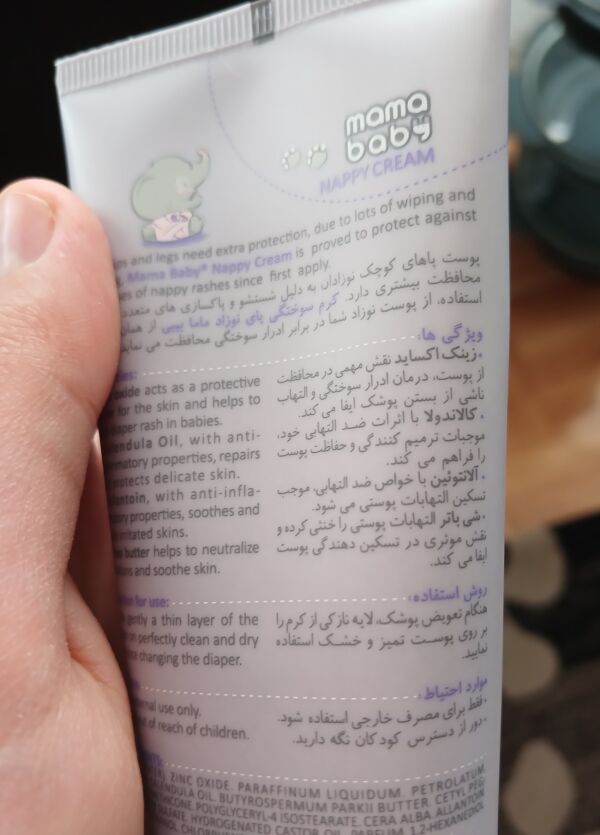 mama
baby
NAPPY CREAM
and legs need extra protection, due to lots of wiping and
Mama Baby® Nappy Cream is proved to protect against
of nappy rashes since first apply.
پوست پاهای کوچک نوزادان به دلیل شستشو و پاکسازی های متعدد
محافظت بیشتری دارد. کرم سوختگی پای نوزاد ماما بیبی از همان
استفاده، از پوست نوزاد شما در برابر ادرار سوختگی محافظت می نماید
oxide acts as a protective
for the skin and helps to
rash in babies.
Oil, with anti-
properties, repairs
delicate skin.
with anti-infla-
properties, soothes and
skins.
butter helps to neutralize
and soothe skin.
ویژگی ها:
•زینک اکساید نقش مهمی در محافظت
از پوست، درمان ادرار سوختگی و التهاب
ناشی از بستن پوشک ایفا می کند.
•کالاندولا با اثرات ضد التهابی خود،
موجبات ترمیم کنندگی و حفاظت پوست
را فراهم می کند.
•آلانتوئین با خواص ضد التهابی، موجب
تسکین التهابات پوستی می شود.
•شی باتر التهابات پوستی را خنثی کرده و
نقش موثری در تسکین دهندگی پوست
ایفا می کند.
for use:
gently a thin layer of the
on perfectly clean and dry
changing the diaper.
روش استفاده:
هنگام تعویض پوشک، لایه نازکی از کرم را
بر روی پوست تمیز و خشک استفاده
نمایید.
use only.
of reach of children.
موارد احتیاط:
•فقط برای مصرف خارجی استفاده شود.
•دور از دسترس کودکان نگه دارید.
ZINC OXIDE, PARAFFINUM LIQUIDUM, PETROLATUM,
OIL, BUTYROSPERMUM PARKII BUTTER, CETYL PEG/
POLYGLYCERYL-4 ISOSTEARATE, CERA ALBA, ALLANTOIN
HYDROGENATED CASTOR OIL, PARFUM, 1,2-HEXANEDIOL